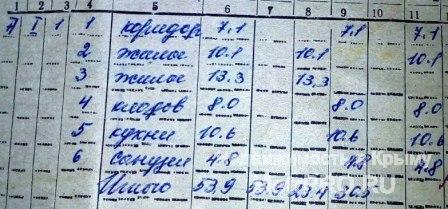 1 2 3 4 5 6 7 8 9 10 11
А I 1 1 коридор 7.1 7.1 7.1
2 жилое 10.1 10.1 10.1
3 жилое 13.3 13.3
4 кладов 8.0 8.0 8.0
5 кухня 10.6 10.6 10.6
6 санузел 4.8 4.8 4.8
Итого 53.9 53.9 23.4 30.5